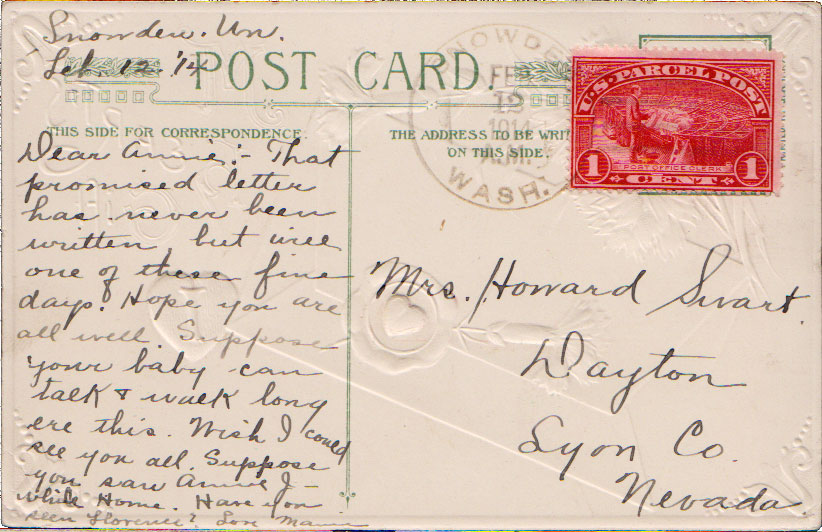 Snowden. Wn.
Feb. 12. '14
POST CARD
THIS SIDE FOR CORRESPONDENCE.
Dear Annie:- That
promised letter
has never been
written, but will
one of these fine
days. Hope you are
all well. Suppose
your baby can
talk & walk long
ere this. Wish I could
see you all. Suppose
you saw Annie J—
while Home. Have you
seen Florence? Love
SNOWDEN
FEB
12
1914
A.M.
WASH.
THE ADDRESS TO BE WRI
ON THIS SIDE.
U.S. PARCEL POST
POST OFFICE CLERK
1 CENT 1
Mrs. Howard Swart.
Dayton
Lyon Co.
Nevada